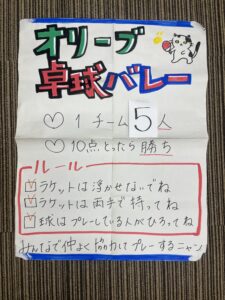 オリーブ
卓球バレー
♡ 1チーム5人
♡ 10点とったら勝ち
ルール
☑ラケットは浮かせないでね
☑ラケットは両手で持ってね
☑球はプレーしている人がひろってね
みんなで仲よく協力してプレーするニャン